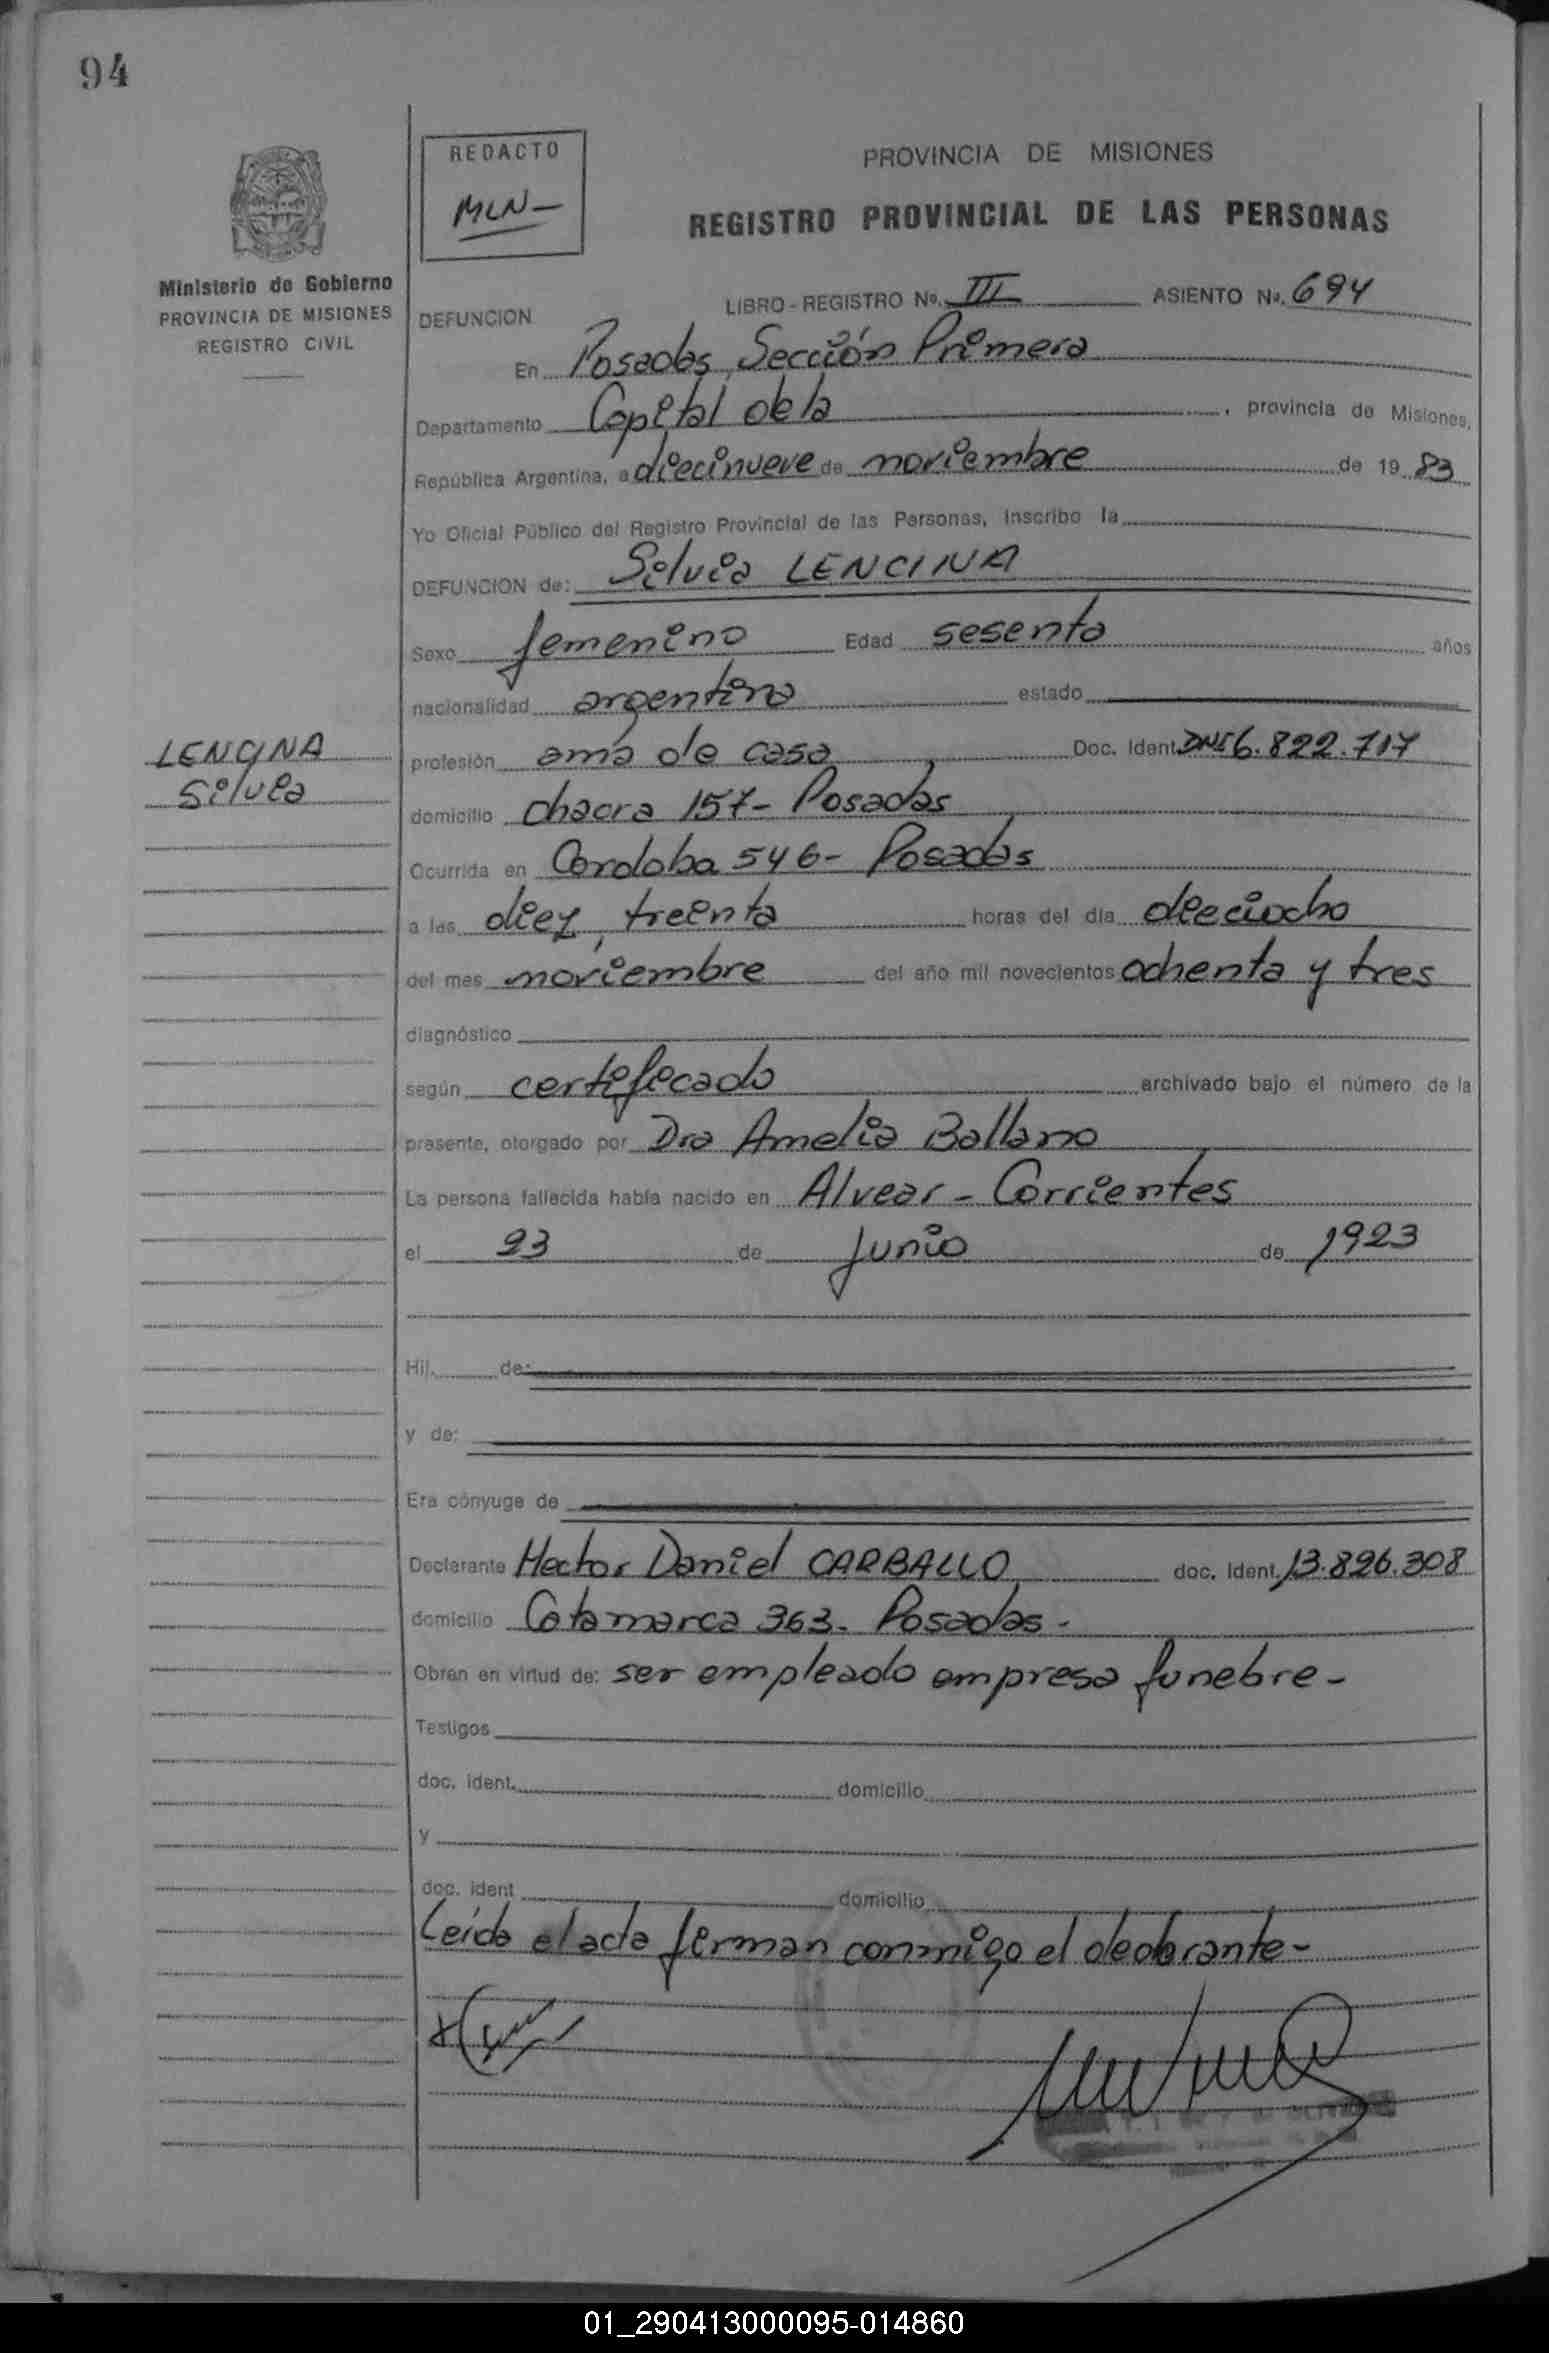 94
REDACTO
MLN-
PROVINCIA DE MISIONES
REGISTRO PROVINCIAL DE LAS PERSONAS
Ministerio de Gobierno
PROVINCIA DE MISIONES
REGISTRO CIVIL
LIBRO - REGISTRO No. III ASIENTO No. 694
DEFUNCION
En Posadas, Sección Primera
Departamento Capital de la, provincia de Misiones,
República Argentina, a diecinueve de noviembre de 19 83
Yo Oficial Público del Registro Provincial de las Personas, inscribo la
DEFUNCION de: Silvia LENCINA
Sexo femenino Edad sesenta años
nacionalidad argentina estado
LENCINA
Silvia
profesión ama de casa Doc. Ident. DNI 6.822.717
domicilio chacra 157- Posadas
Ocurrida en Cordoba 546- Posadas
a las diez, treinta horas del día dieciocho
del mes noviembre del año mil novecientos ochenta y tres
diagnóstico
según certificado archivado bajo el número de la
presente, otorgado por Dra Amelia Ballano
La persona fallecida había nacido en Alvear - Corrientes
el 23 de junio de 1923
Hij. de:
y de:
Era cónyuge de
Declarante Hector Daniel CARBALLO doc. Ident. 13.826.308
domicilio Catamarca 363- Posadas-
Obran en virtud de: ser empleado empresa funebre-
Testigos
doc. ident. domicilio
y
doc. ident domicilio
Leída el acta firman conmigo el declarante-
01_290413000095-014860